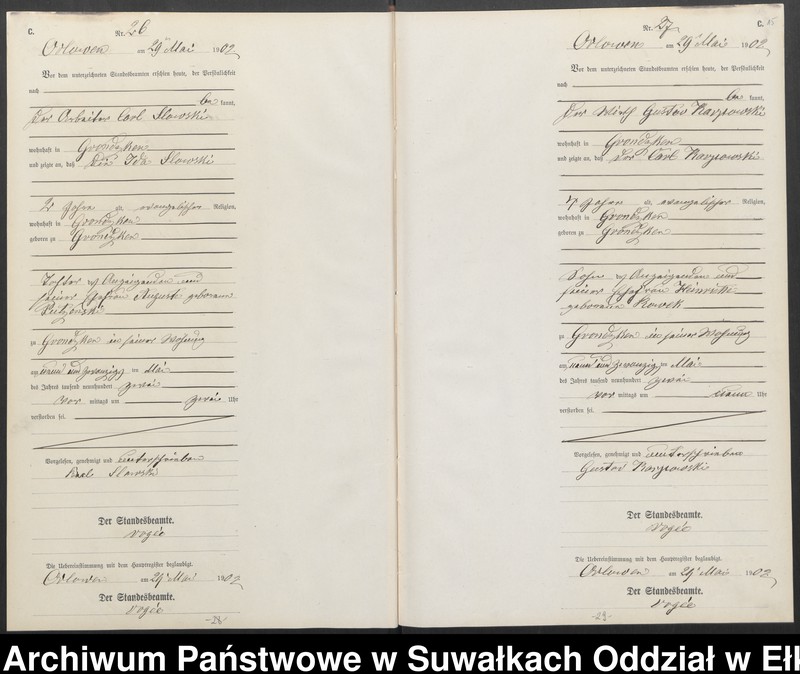 C.
Nr. 26
Orlowen am 29t Mai 1902
Vor dem unterzeichneten Standesbeamten erschien heute, der Persönlichkeit
nach
be kannt,
Der Arbeiter Carl Slowski
wohnhaft in Grondzken
und zeigte an, daß die Ida Slowski
2 Jahre evangelischer Religion,
wohnhaft in Grondzken
geboren zu Grondzken
Tochter des Anzeigenden und
seiner Ehefrau Auguste geborene
zu Grondzken in seiner Wohnung
am neun und zwanzigsten Mai
des Jahres tausend neunhundert zwei
vor mittags um zwei Uhr
verstorben sei.
Vorgelesen, genehmigt und unterschrieben
Karl Slowski
Der Standesbeamte.
Vogée
Die Uebereinstimmung mit dem Hauptregister beglaubigt.
Orlowen am 29t Mai 1902
Der Standesbeamte.
Vogée
-28-
Nr. 27
C. 15
Orlowen am 29t Mai 1902
Vor dem unterzeichneten Standesbeamten erschien heute, der Persönlichkeit
nach
be kannt,
Der Wirth Gustav
wohnhaft in Grondzken
und zeigte an, daß der Carl
7 Jahre evangelischer Religion,
wohnhaft in Grondzken
geboren zu Grondzken
Sohn des Anzeigenden und
seiner Ehefrau Heinriette
geborene Rowek
zu Grondzken in seiner Wohnung
am neun und zwanzigsten Mai
des Jahres tausend neunhundert zwei
vor mittags um neun Uhr
verstorben sei.
Vorgelesen, genehmigt und unterschrieben
Gustav
Der Standesbeamte.
Vogée
Die Uebereinstimmung mit dem Hauptregister beglaubigt.
Orlowen am 29t Mai 1902
Der Standesbeamte.
Vogée
-29-
Archiwum Państwowe w Suwałkach Oddział w Ełk